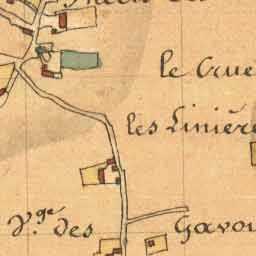 le Crue
les Linière
V.ge des Gavou